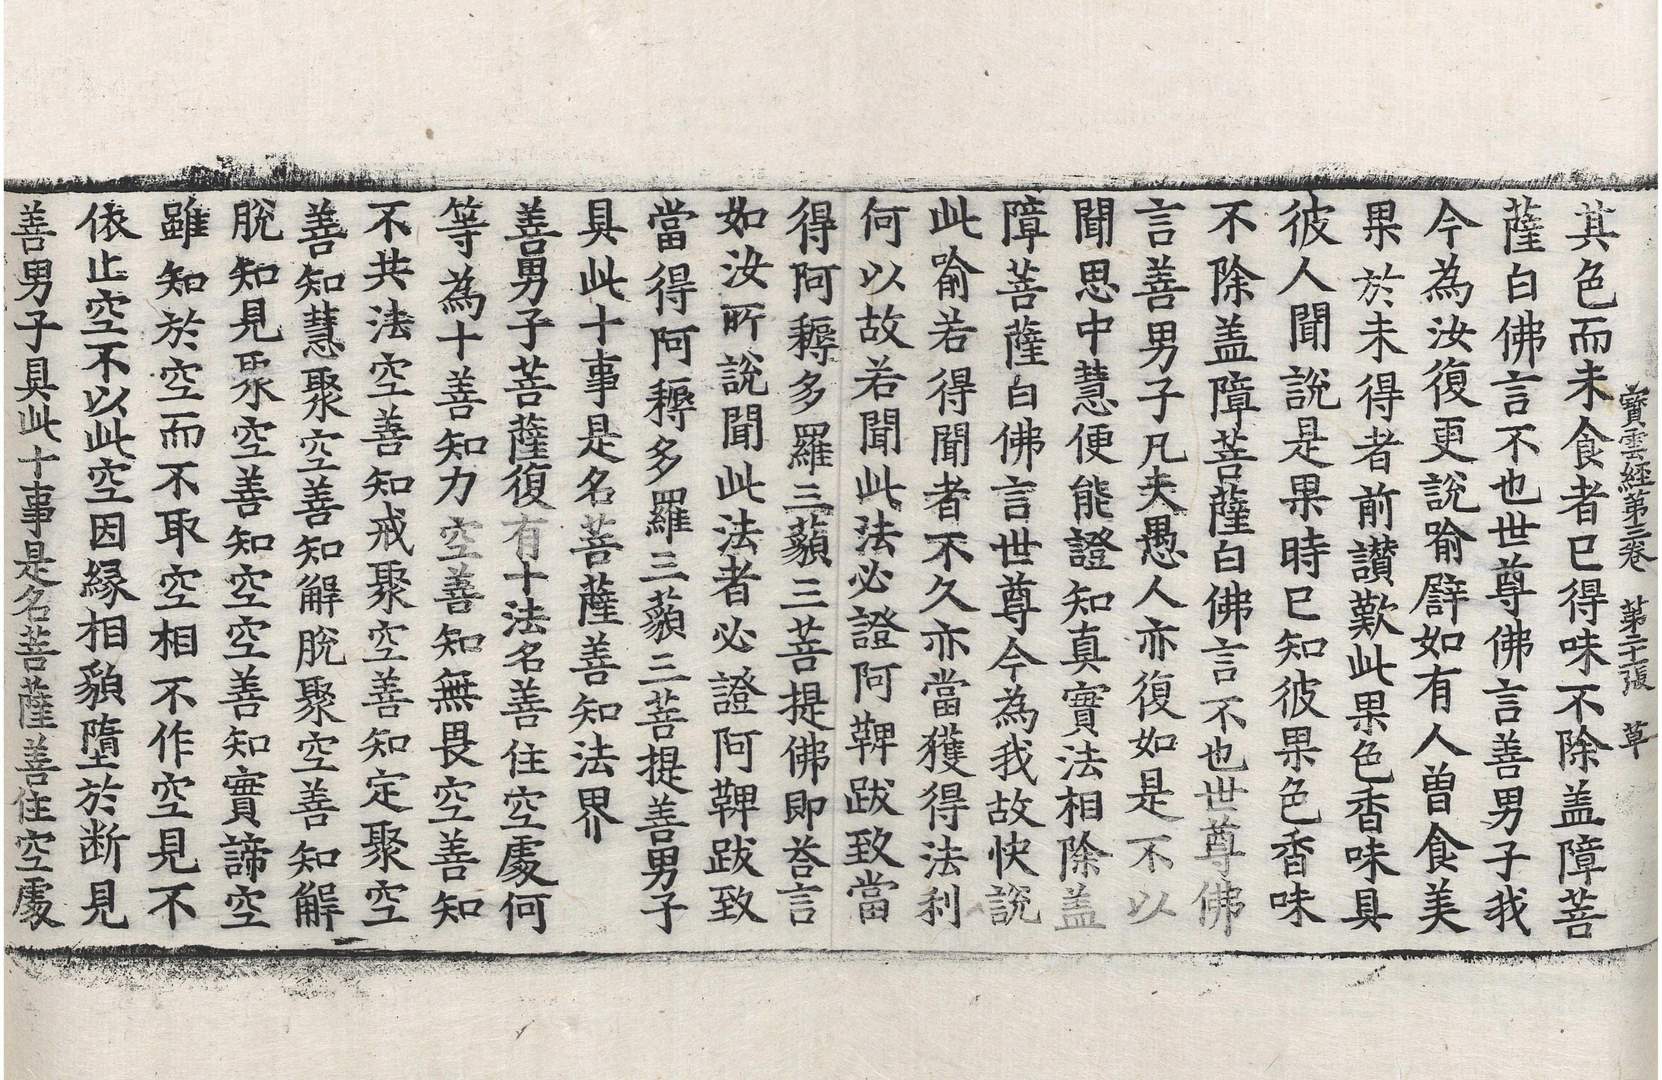 寶雲經第三卷 第二十張 草
其色而未食者已得味不除盖障菩
薩白佛言不也世尊佛言善男子我
今為汝復更說喻譬如有人曽食美
果於未得者前讃歎此果色香味具
彼人聞說是果時已知彼果色香味
不除盖障菩薩白佛言不也世尊佛
言善男子凡夫愚人亦復如是不以
聞思中慧便能證知真實法相除盖
障菩薩白佛言世尊今為我故快說
此喻若得聞者不久亦當獲得法利
何以故若聞此法必證阿鞞跋致當
得阿耨多羅三藐三菩提佛即荅言
如汝所說聞此法者必證阿鞞跋致
當得阿耨多羅三藐三菩提善男子
具此十事是名菩薩善知法界
善男子菩薩復有十法名善住空處何
等為十善知力空善知無畏空善知
不共法空善知戒聚空善知定聚空
善知慧聚空善知解脫聚空善知解
脫知見聚空善知空空善知實諦空
雖知於空而不取空相不作空見不
依止空不以此空因緣相貌墮於断見
善男子具此十事是名菩薩善住空處